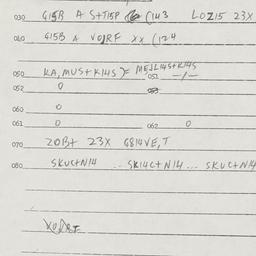 030 G15B A S+T15P (143 LOZ15 23X
040 G15B A VORF XX (124
050 KA, MUS+K14S)= MEJL14S+K14S
052 0 051 -/-
060 0
061 0 062 0
070 20B+ 23X G814VE,T
080 SKUC+N14 ... SK14C+N14 ... SKUC+N14